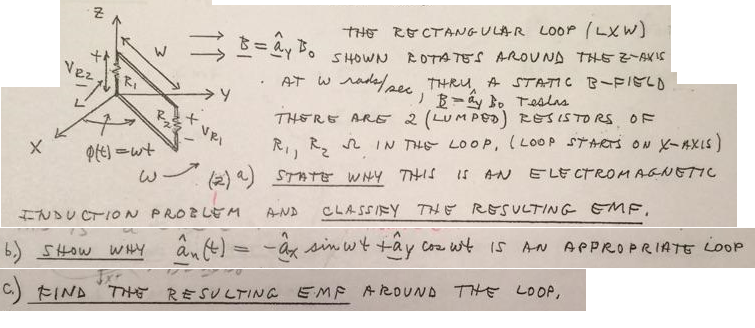 Z
THE RECTANGULAR LOOP (LXW)
W
B = ây B₀ SHOWN ROTATES AROUND THE Z-AXIS
+
V_R2
R₁
AT ω rads/sec THRU A STATIC B-FIELD
-
L
Y
, B = ây B₀ Teslas
R₂ + V_R1 -
THERE ARE 2 (LUMPED) RESISTORS OF
X
R₁, R₂ Ω IN THE LOOP. (LOOP STARTS ON X-AXIS)
φ(t) = ωt
ω
(2) a) STATE WHY THIS IS AN ELECTROMAGNETIC
INDUCTION PROBLEM AND CLASSIFY THE RESULTING EMF.
b.) SHOW WHY ân(t) = -âx sin ωt + ây cos ωt IS AN APPROPRIATE LOOP
c.) FIND THE RESULTING EMF AROUND THE LOOP.